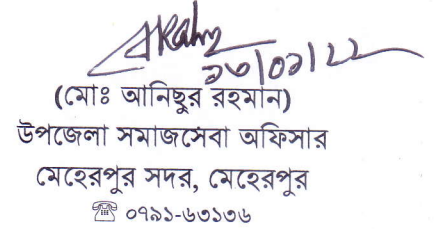 ২৩/০১/২২
(মোঃ আনিছুর রহমান)
উপজেলা সমাজসেবা অফিসার
মেহেরপুর সদর, মেহেরপুর
☎ ০৭৯১-৬৩১৩৬